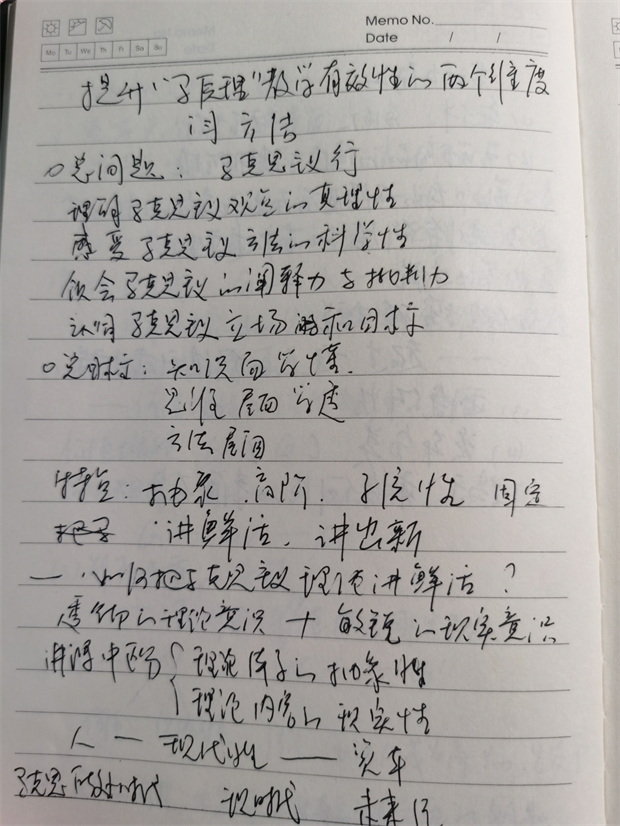 Memo No.
Date / /
Mo Tu We Th Fr Sa Su
提升“马原理”教学有效性的两个维度
闫方洁
总问题：马克思主义行
理解马克思主义观点的真理性
感受马克思主义方法的科学性
领会马克思主义的阐释力与批判力
认同马克思主义立场和目标
总目标：知识面 学懂
思维层面 学透
方法层面
特点：抽象、高阶、 性 固定
讲鲜活、讲出新
一、如何把马克思主义理论讲鲜活？
透彻的理论意识 + 敏锐的现实意识
讲
理论 的抽象性
理论内容的现实性
人 — 现代性 — 资本
马克思 时代 说时代 未来